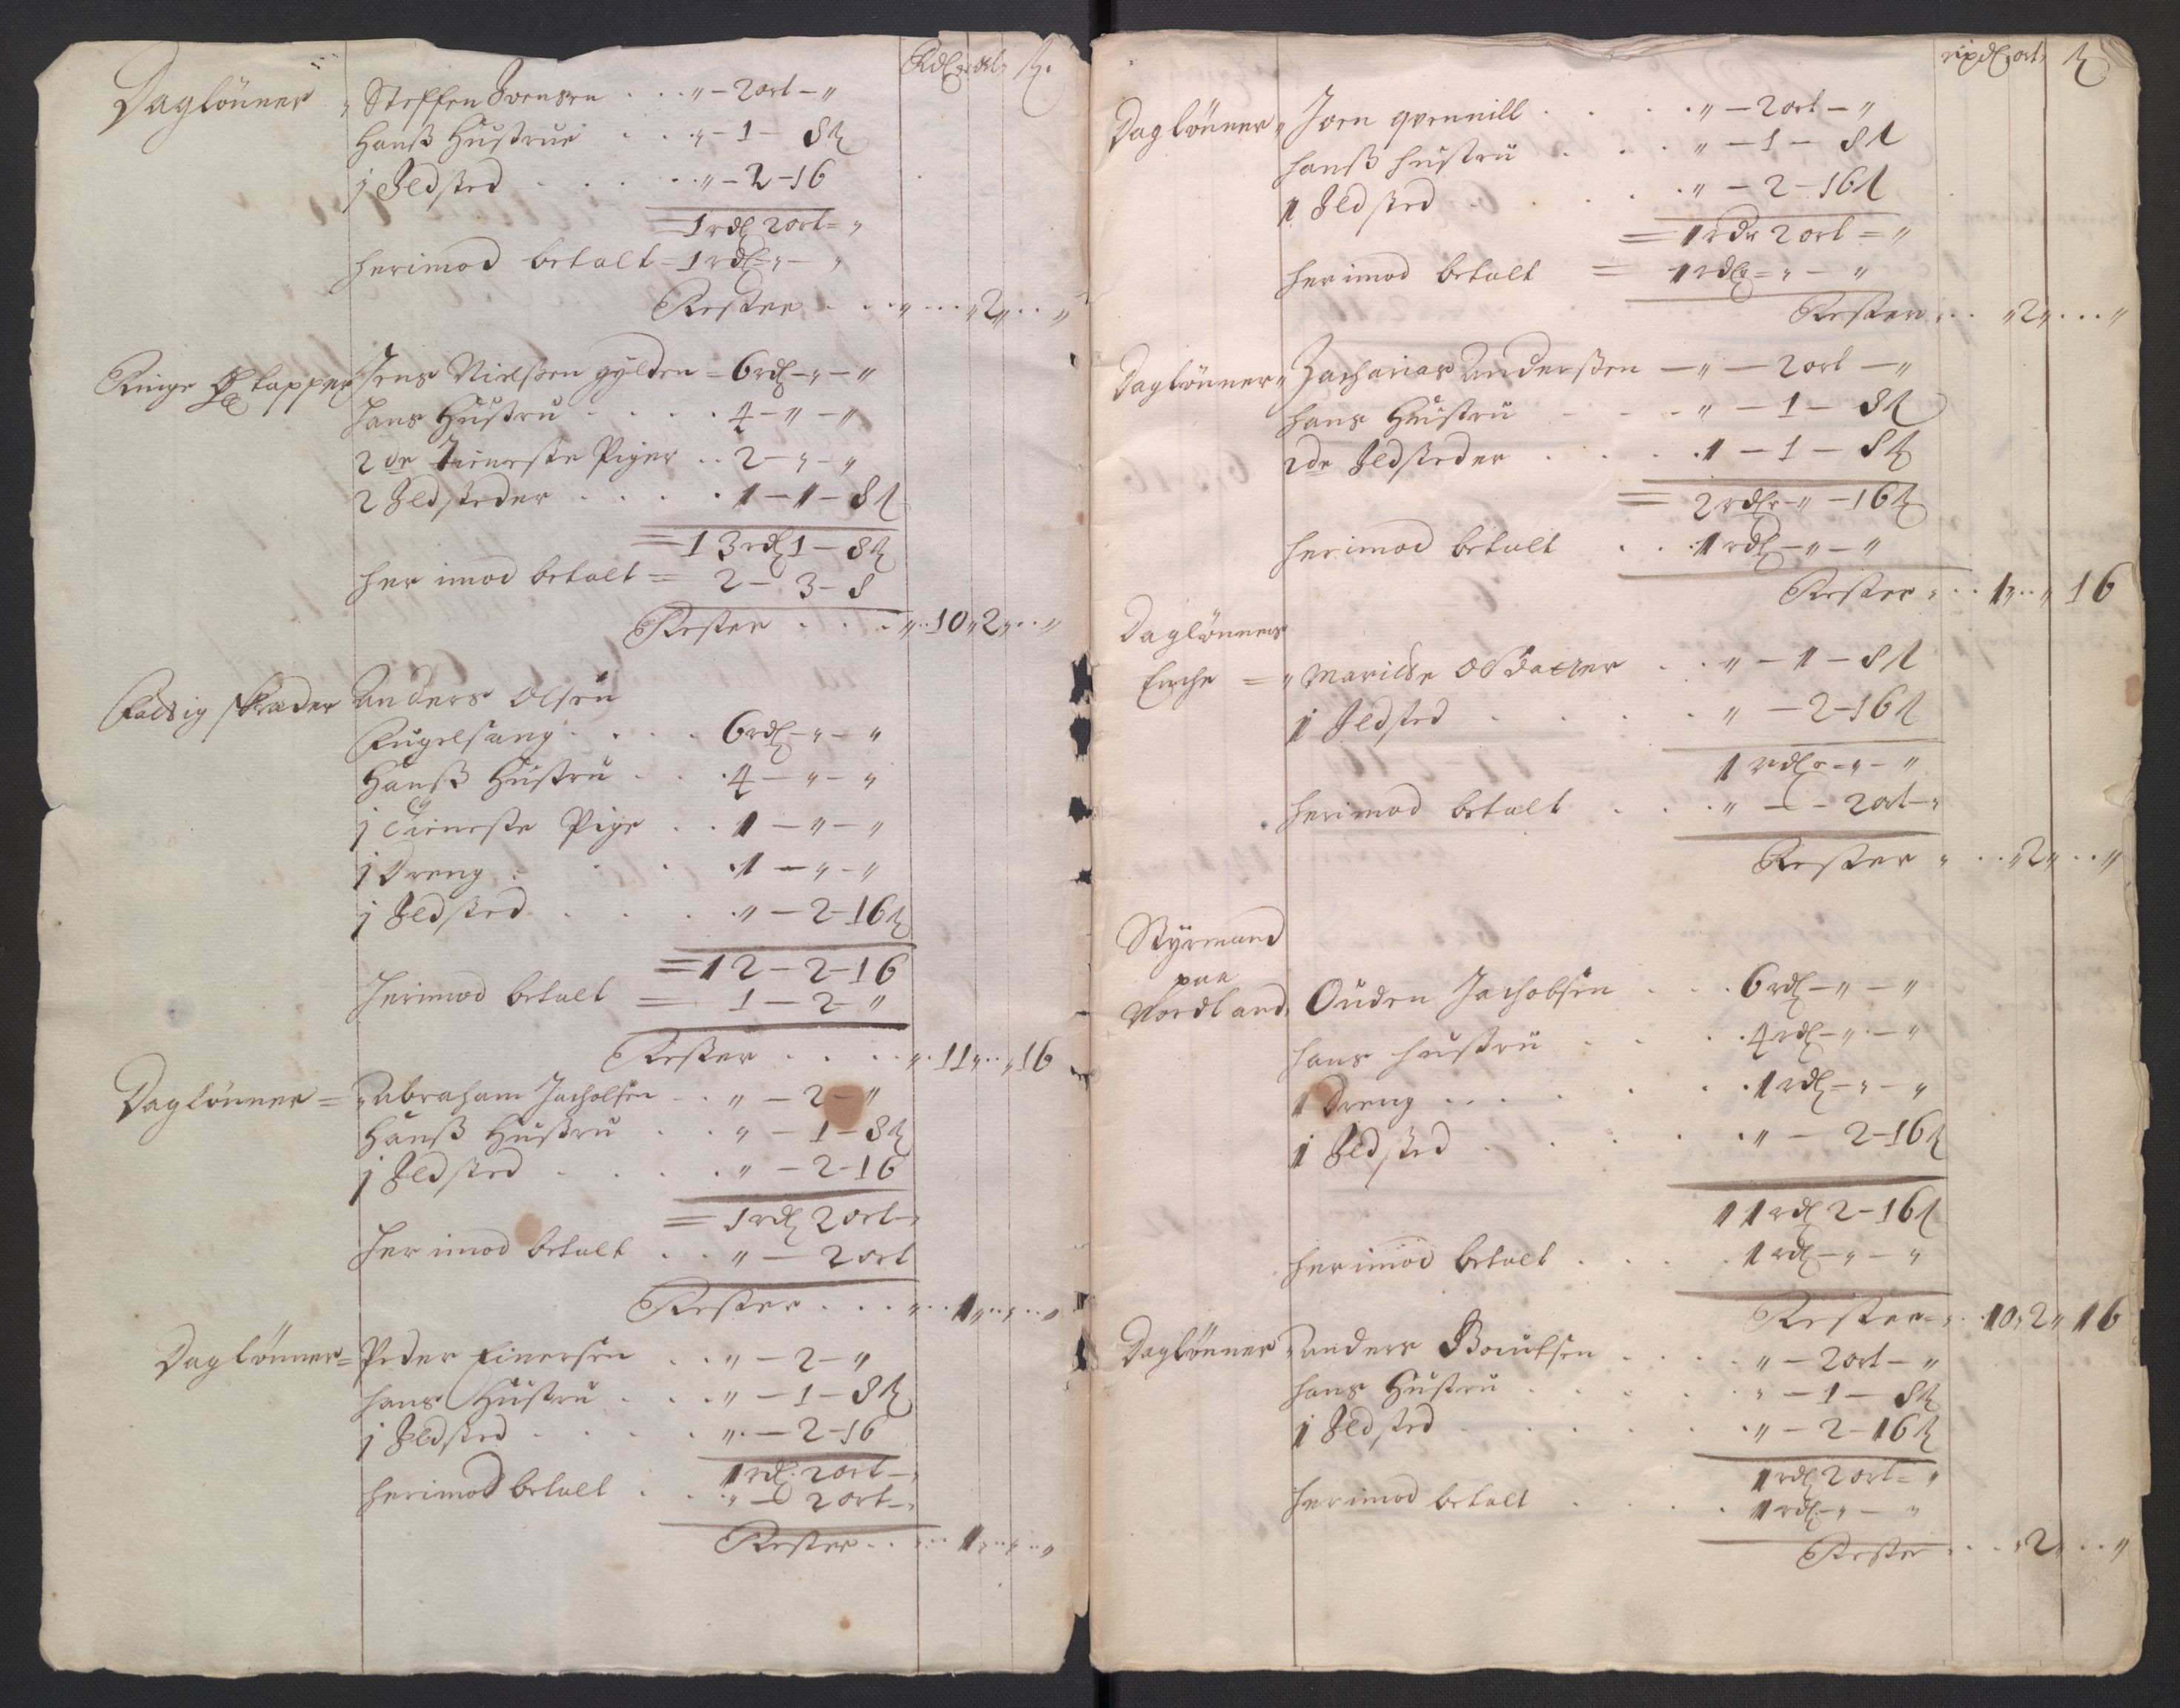 Rdlr ort ß.
Daglönner „ Steffen Svensen . . . „ – 2 ort – „
Hanß Hustrue . . . „ – 1 – 8 ß
j Ildsted . . . . „ – 2 – 16
= 1 rdl 2 ort = „
herimod betalt = 1 rdl = „ – „
Rester . . . „ . . . „ 2 „ . . „
Ringe Øltapper Jens Nielßen gylden = 6 rdl – „ – „
Hans Hustru . . . . 4 – „ – „
2de Tieneste Piger . . 2 – „ – „
2 Ildsteder . . . . 1 – 1 – 8 ß
= 13 rdl 1 – 8 ß
her imod betalt = 2 – 3 – 8
Rester . . . „ . . 10 „ 2 „ . . „
Fattig skræder Anders Olsen
Fugelsang . . . . 6 rdl – „ – „
Hanß Hustru . . . 4 – „ – „
j Tieneste Pige . . 1 – „ – „
j Dreng . . . . 1 – „ – „
j Ildsted . . . . „ – 2 – 16 ß
= 12 – 2 – 16
Herimod betalt = 1 – 2 – „
Rester . . . . „ . 11 „ . . „ 16
Daglönner = „ Abraham Jacholsen . . „ – 2 – „
Hanß Hustru . . „ – 1 – 8 ß
j Ildsted . . . . „ – 2 – 16
= 1 rdl 2 ort – „
Her imod betalt . . „ – 2 ort
Rester . . . „ . . 1 „ . . „ . . „
Daglönner = Peder Einersen . . „ – 2 – „
hans Hustru . . . „ – 1 – 8 ß
j Ildsted . . . . „ – 2 – 16
1 rdl 2 ort – „
herimod betalt . . . „ – 2 ort – „
Rester . . . . . 1 „ . . „ . . „
rixdlr ort ß
Daglönner „ Joen . . . . . „ – 2 ort – „
hanß hustru . . . „ – 1 – 8 ß
1 Ildsted . . . . „ – 2 – 16 ß
= 1 rdr 2 ort = „
herimod betalt = 1 rdlr = „ – „
Rester . . . „ 2 „ . . . „
Daglönner „ Zacharias Anderßen – „ – 2 ort – „
hans Hustru . . . „ – 1 – 8 ß
2de Ildsteder . . . . 1 – 1 – 8 ß
= 2 rdlr – „ – 16 ß
herimod betalt . . . 1 rdl – „ – „
Rester „ . . 1 „ . . „ 16
Daglönners
Enche = „ Maritte Olsdatter . . „ – 1 – 8 ß
1 Ildsted . . . . „ – 2 – 16 ß
1 rdlr – „ – „
herimod betalt . . . „ – – 2 ort – „
Rester „ . . „ 2 „ . . „
Styrmand
paa
Nordland „ Ouden Jachobsen . . . 6 rdl – „ – „
hans hustru . . . . 4 rdl – „ – „
1 Dreng . . . . . . 1 rdl – „ – „
1 Ildsted . . . . „ – 2 – 16 ß
11 rdl 2 – 16 ß
herimod betalt . . . . 1 rdl – „ – „
Rester = „ . 10 „ 2 „ 16
Daglönner „ Anders . . . . „ – 2 ort – „
hans Hustru . . . . „ – 1 – 8 ß
1 Ildsted . . . . „ – 2 – 16 ß
1 rdl 2 ort = „
herimod betalt . . . 1 rdl – „ – „
Rester . . . „ 2 „ . . „